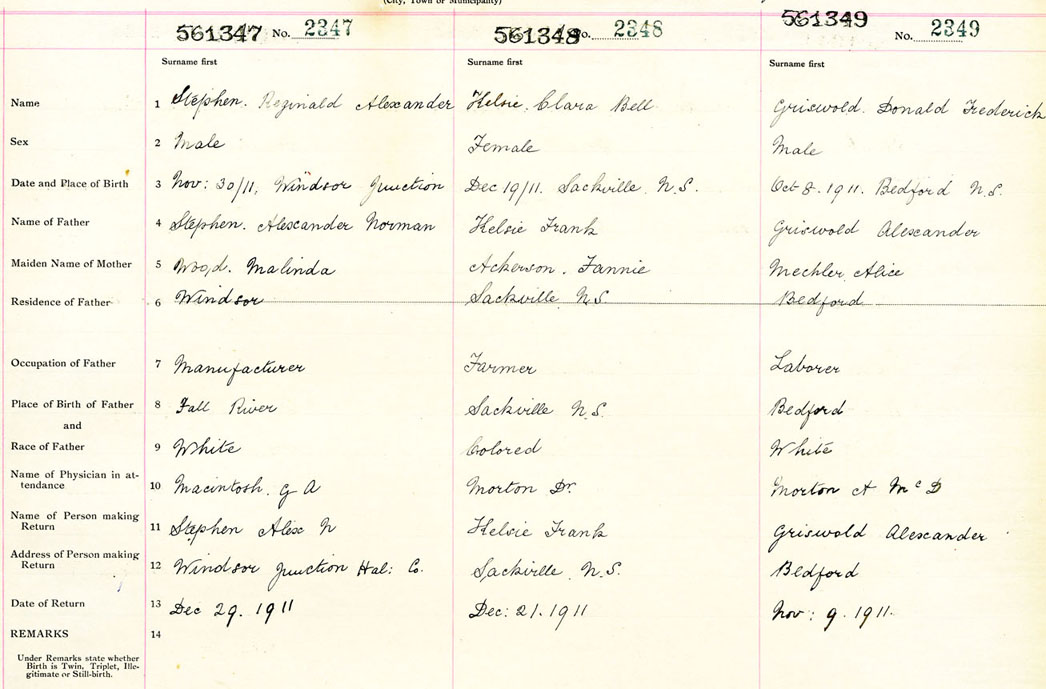 (City, Town or Municipality)
561347 No. 2347 561348 No. 2348 561349 No. 2349
Surname first Surname first Surname first
Name 1 Stephen. Reginald Alexander Kelsie. Clara Bell Griswold. Donald Frederick
Sex 2 Male Female Male
Date and Place of Birth 3 Nov: 30/11, Windsor Junction Dec 19/11. Sackville N.S. Oct 8. 1911. Bedford N.S.
Name of Father 4 Stephen. Alexander Norman Kelsie Frank Griswold Alexander
Maiden Name of Mother 5 Wood. Malinda Ackerson. Fannie Mechler Alice
Residence of Father 6 Windsor Sackville N.S. Bedford
Occupation of Father 7 Manufacturer Farmer Laborer
Place of Birth of Father 8 Fall River Sackville N.S. Bedford
and
Race of Father 9 White Colored White
Name of Physician in at-
tendance 10 Macintosh. G A Morton Dr. Morton A McD
Name of Person making
Return 11 Stephen Alex N Kelsie Frank Griswold Alexander
Address of Person making
Return 12 Windsor Junction Hal: Co. Sackville N.S. Bedford
Date of Return 13 Dec 29. 1911 Dec: 21. 1911 Nov: 9. 1911.
REMARKS 14
Under Remarks state whether
Birth is Twin, Triplet, Ille-
gitimate or Still-birth.